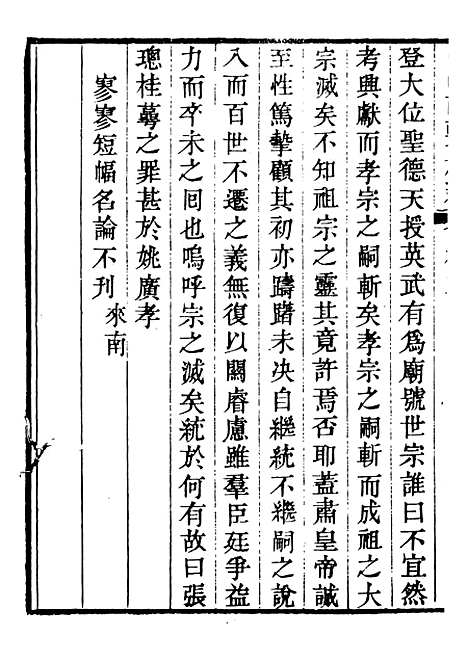 登大位聖德天授英武有爲廟號世宗誰曰不宜然
考興獻而孝宗之嗣斬矣孝宗之嗣斬而成祖之大
宗滅矣不知祖宗之靈其竟許焉否耶蓋肅皇帝誠
至性篤摯顧其初亦躊躇未决自繼統不繼嗣之說
入而百世不遷之義無復以關睿慮雖羣臣廷爭益
力而卒未之回也嗚呼宗之滅矣統於何有故曰張
璁桂萼之罪甚於姚廣孝
寥寥短幅名論不刋 來南